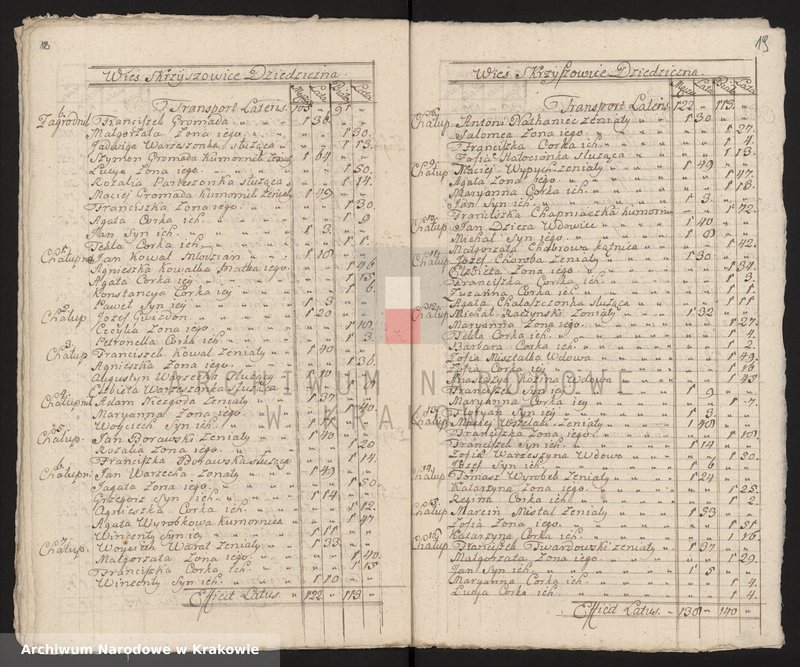 18
Wieś Skrzyszowice Dziedziczna.
Lata Lata
Transport Lateris 105 91
Zagrodnik Franciszek Gromada 1 36
Małgorzata Zona iego 1 30
Jadwiga Warzeszonka służąca 1 13
Szymon Gromada kumornik 1 64
Lucya Zona iego 1 50
Rozalia Parteszonka służąca 1 14
Maciej Gromada kumornik Zeniaty 1 49
Franciszka Zona iego 1 30
Agata Corka ich 1 9
Jan Syn ich 1 3
Tekla Corka ich 1 1
Chałupnik Jan Kowal 1 18
Agnieszka Kowalka Matka iego 1 46
Agata Corka iey 1 15
Konstancya Corka iey 1 6
Paweł Syn iey 1 3
2 Chałup. Jozef Gwizdon 1 20
Cecylia Zona iego 1 18
Petronella Corka ich 1 3
3 Chałup. Franciszek Kowal Zeniaty 1 40
Agnieszka Zona iego 1 36
Augustyn Warzecha służący 1 10
Elżbieta Warzeszonka służąca 1
4 Chałupnik Adam Niezgoda Zeniaty 1 37
Maryanna Zona iego 1 40
Woyciech Syn ich 1 11
5 Chałup. Jan Borawski Zeniaty 1 40
Rozalia Zona iego 1 20
Franciszka Borawska służąca 1 14
6 Chałupnik Jan Warzecha Zonaty 1 49
Jagata Zona iego 1 50
Grzegorz Syn ich 1 14
Agnieszka Corka ich 1 12
Agata Wyrobkowa kumornica 1 47
Wincenty Syn iey 1 11
7 Chałup. Woyciech Waral Zeniaty 1 33
Małgorzata Zona iego 1 40
Franciszka Corka ich 1 15
Wincenty Syn ich 1 10
Efficit Latus 122 113
19
Wieś Skrzyszowice Dziedziczna.
Lata Lata
Transport Lateris 122 113
8 Chałup. Antoni Nathaniec Zeniaty 1 30
Salomea Zona iego 1 27
Franciszka Corka ich 1 4
Zofia Matocionka służąca 1 13
9 Chałup Maciej Wypuch Zeniaty 1 49
Agata Zona iego 1 47
Maryanna Corka ich 1 18
Jan Syn ich 1 3
Franciszka Chapniaczka kumorni 1 72
10 Chałup. Jan Dzieza Wdowiec 1 40
Michał Syn iego 1 8
Małgorzata Chabinowa kątnica 1 42
11 Chałup. Jozef Choroba Zeniaty 1 30
Elżbieta Zona iego 1 34
Franciszka Corka ich 1 3
Zuzanna Corka ich 1 1
Agata Chalaszczonka służąca 1 11
12 Chałup. Michał Raczynski Zoniaty 1 32
Maryanna Zona iego 1 27
Tekla Corka ich 1 4
Barbara Corka ich 1 2
Zofia Misztalka Wdowa 1 49
Zofia Corka iey 1 16
Wdowa 1 43
Franciszek Syn iey 1 9
Maryanna Corka iey 1 7
Floryan Syn iey 1 3
13 Chałup. Maciey Zeniaty 1 48
Franciszka Zona iego 1 18
Franciszek Syn ich 1 14
Zofia Warzeszyna Wdowa 1 50
Jozef Syn ich 1 6
14 Chałup. Tomasz Wyrobek Zeniaty 1 24
Katarzyna Zona iego 1 25
Regina Corka ich 1 2
15 Chałup Marcin Mistal Zeniaty 1 53
Zofia Zona iego 1 51
Katarzyna Corka ich 1 16
16 Chałup Franciszek Twardowski Zeniaty 1 37
Małgorzata Zona iego 1 29
Jan Syn ich 1 5
Maryanna Corka ich 1 4
Lucya Corka ich 1 4
Efficit Latus 138 140
ARCHIWUM NARODOWE
W KRAKOWIE
Archiwum Narodowe w Krakowie